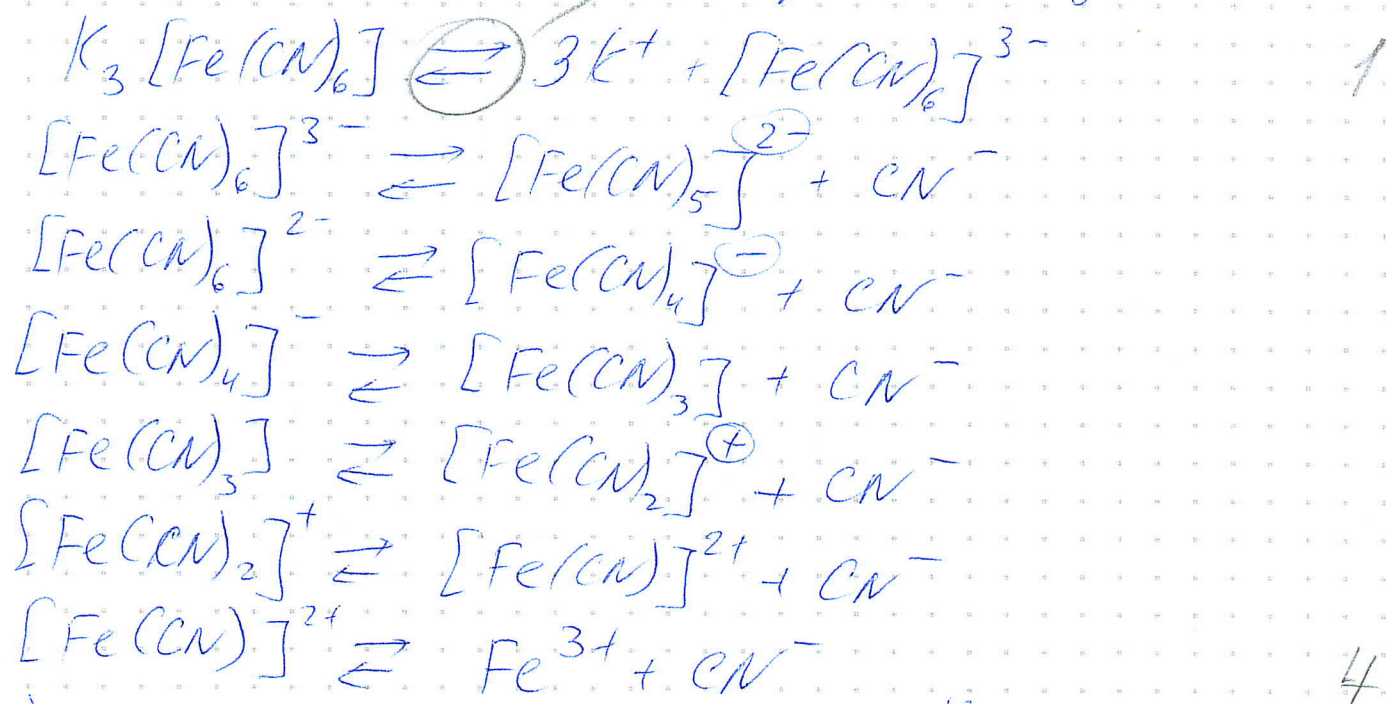 K₃[Fe(CN)₆] ⇄ 3K⁺ + [Fe(CN)₆]³⁻ 1
[Fe(CN)₆]³⁻ ⇄ [Fe(CN)₅]²⁻ + CN⁻
[Fe(CN)₆]²⁻ ⇄ [Fe(CN)₄]⁻ + CN⁻
[Fe(CN)₄]⁻ ⇄ [Fe(CN)₃] + CN⁻
[Fe(CN)₃] ⇄ [Fe(CN)₂]⁺ + CN⁻
[Fe(CN)₂]⁺ ⇄ [Fe(CN)]²⁺ + CN⁻
[Fe(CN)]²⁺ ⇄ Fe³⁺ + CN⁻ 4